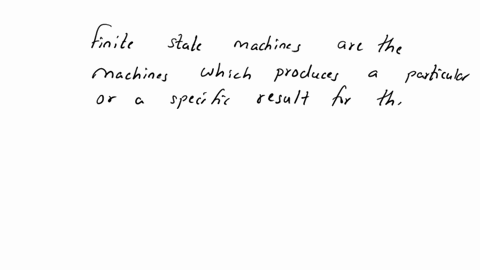 finite state machines are the
machines which produces a particular
or a specific result for th